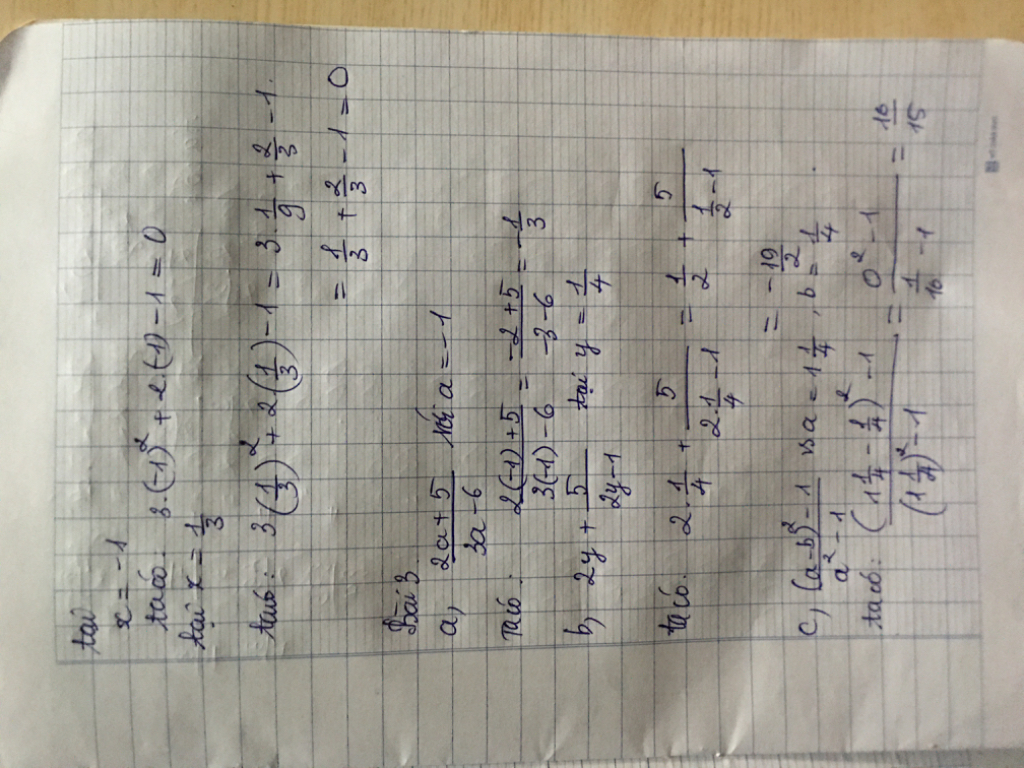 tại
x = -1
ta có: 3.(-1)² + 2.(-1) - 1 = 0
tại x = 1/3
ta có: 3(1/3)² + 2(1/3) - 1 = 3.1/9 + 2/3 - 1.
= 1/3 + 2/3 - 1 = 0
Bài 3
a, (2a+5)/(3a-6) với a = -1
Ta có: (2(-1)+5)/(3(-1)-6) = (-2+5)/(-3-6) = -1/3
b, 2y + 5/(2y-1) tại y = 1/4
ta có. 2.1/4 + 5/(2.1/4-1) = 1/2 + 5/(1/2-1)
= -19/2
c, ((a-b)²-1)/(a²-1) a = 1 1/4, b = 1/4
ta có: ((1 1/4 - 1/4)² - 1)/((1 1/4)² - 1) = (0² - 1)/(1/16 - 1) = 16/15